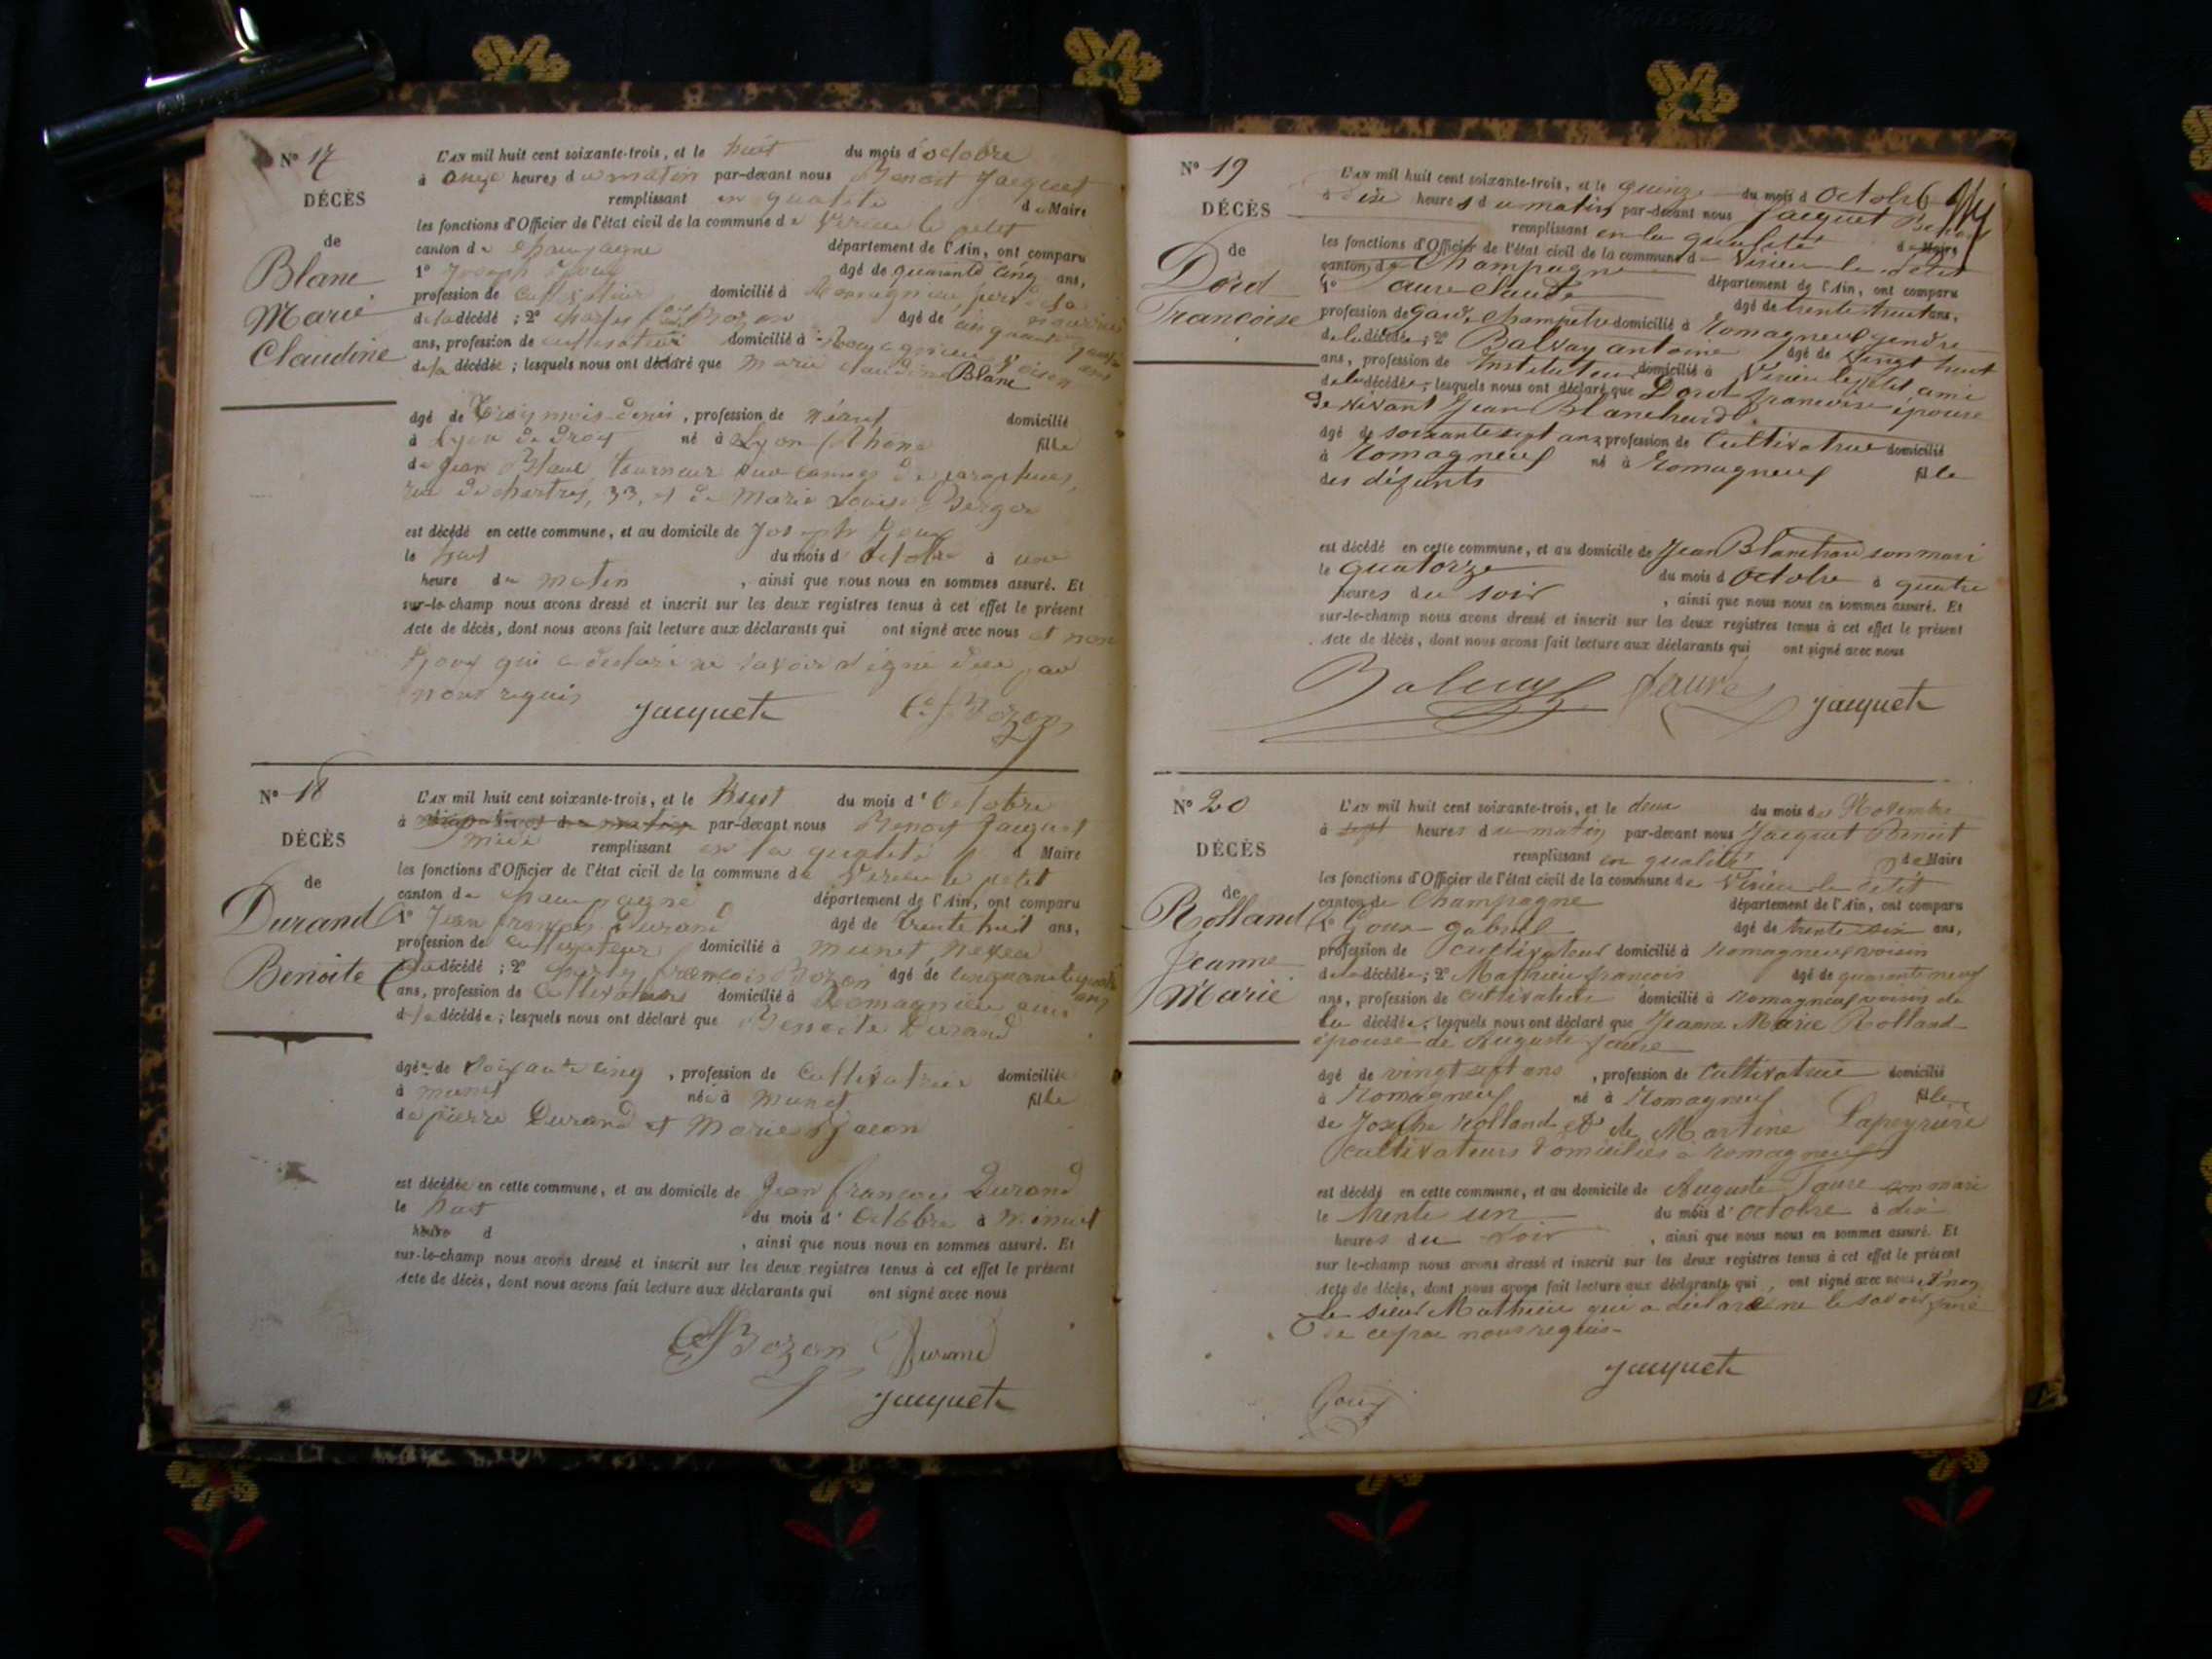 N° 17
DÉCÈS
de
Blanc
Marie
Claudine
L'AN mil huit cent soixante-trois, et le huit du mois d'octobre
à onze heures du matin par-devant nous Benoit Jacquet
remplissant en qualité de Maire
les fonctions d'Officier de l'état civil de la commune de Virieu le petit
canton de Champagne département de l'Ain, ont comparu
1° Joseph Goux âgé de quarante cinq ans,
profession de cultivateur domicilié à
de la décédé ; 2° Bozon âgé de
ans, profession de cultivateur domicilié à
de la décédée ; lesquels nous ont déclaré que Marie Claudine Blanc
âgé de trois mois demi, profession de Néant domicilié
à Lyon né à Lyon Rhône fille
de Jean Blanc tourneur
rue de chartres, 33, et de Marie Louise Berger
est décédé en cette commune, et au domicile de Joseph Goux
le huit du mois d'octobre à une
heure du matin, ainsi que nous nous en sommes assuré. Et
sur-le-champ nous avons dressé et inscrit sur les deux registres tenus à cet effet le présent
Acte de décès, dont nous avons fait lecture aux déclarants qui ont signé avec nous et non
Goux qui a déclaré ne savoir signé de ce par
nous requis
Jacquet C. f. Bozon
N° 18
DÉCÈS
de
Durand
Benoite
L'AN mil huit cent soixante-trois, et le huit du mois d'Octobre
à par-devant nous Benoit Jacquet
midi remplissant en la qualité d Maire
les fonctions d'Officier de l'état civil de la commune de Virieu le petit
canton de Champagne département de l'Ain, ont comparu
1° Jean françois Durand âgé de trente huit ans,
profession de cultivateur domicilié à munet, neveu
de la décédé ; 2° françois Bozon âgé de cinquante
ans, profession de cultivateur domicilié à Romagnieu ami
de la décédée ; lesquels nous ont déclaré que Benoite Durand
âgée de Soixante cinq, profession de Cultivatrice domiciliée
à munet née à munet fille
de pierre Durand et Marie
est décédée en cette commune, et au domicile de Jean françois Durand
le huit du mois d'Octobre à minuit
heure d, ainsi que nous nous en sommes assuré. Et
sur-le-champ nous avons dressé et inscrit sur les deux registres tenus à cet effet le présent
Acte de décès, dont nous avons fait lecture aux déclarants qui ont signé avec nous
Bozon Durand
Jacquet
N° 19
DÉCÈS
de
Dord
Françoise
L'AN mil huit cent soixante-trois, et le quinze du mois d Octobre
à dix heures du matin par-devant nous Jacquet Benoit
remplissant en la qualité de Maire
les fonctions d'Officier de l'état civil de la commune de Virieu le petit
canton de Champagne département de l'Ain, ont comparu
1° Faure Claude âgé de trente huit ans,
profession de garde Champêtre domicilié à Romagneuf gendre
de la décédée ; 2° Balvay antoine âgé de vingt huit
ans, profession de Instituteur domicilié à Virieu le petit, ami
de la décédée ; lesquels nous ont déclaré que Dord françoise épouse
de vivant Jean Blanchard
âgé de soixante sept ans profession de Cultivatrice domicilié
à Romagneuf né à Romagneuf fille
des défunts
est décédé en cette commune, et au domicile de Jean Blanchard son mari
le quatorze du mois d Octobre à quatre
heures du soir, ainsi que nous nous en sommes assuré. Et
sur-le-champ nous avons dressé et inscrit sur les deux registres tenus à cet effet le présent
Acte de décès, dont nous avons fait lecture aux déclarants qui ont signé avec nous
Balvay Faure Jacquet
N° 20
DÉCÈS
de
Rolland
Jeanne
Marie
L'AN mil huit cent soixante-trois, et le deux du mois de Novembre
à sept heures du matin par-devant nous Jacquet Benoit
remplissant en qualité de Maire
les fonctions d'Officier de l'état civil de la commune de Virieu le Petit
canton de Champagne département de l'Ain, ont comparu
1° Goux gabriel âgé de trente six ans,
profession de cultivateur domicilié à Romagneuf voisin
de la décédée ; 2° Mathieu françois âgé de quarante neuf
ans, profession de cultivateur domicilié à Romagneuf voisin de
la décédée ; lesquels nous ont déclaré que Jeanne Marie Rolland
épouse de Auguste Faure
âgé de vingt sept ans, profession de Cultivatrice domicilié
à Romagneuf né à Romagneuf fille
de Joseph Rolland et de Martine Lapeyrière
cultivateurs domiciliés à Romagneuf
est décédé en cette commune, et au domicile de Auguste Faure son mari
le trente un du mois d'octobre à dix
heures du soir, ainsi que nous nous en sommes assuré. Et
sur le-champ nous avons dressé et inscrit sur les deux registres tenus à cet effet le présent
Acte de décès, dont nous avons fait lecture aux déclarants qui ont signé avec nous et non
le sieur Mathieu qui a déclaré ne le savoir faire
de ce par nous requis
Jacquet
Goux